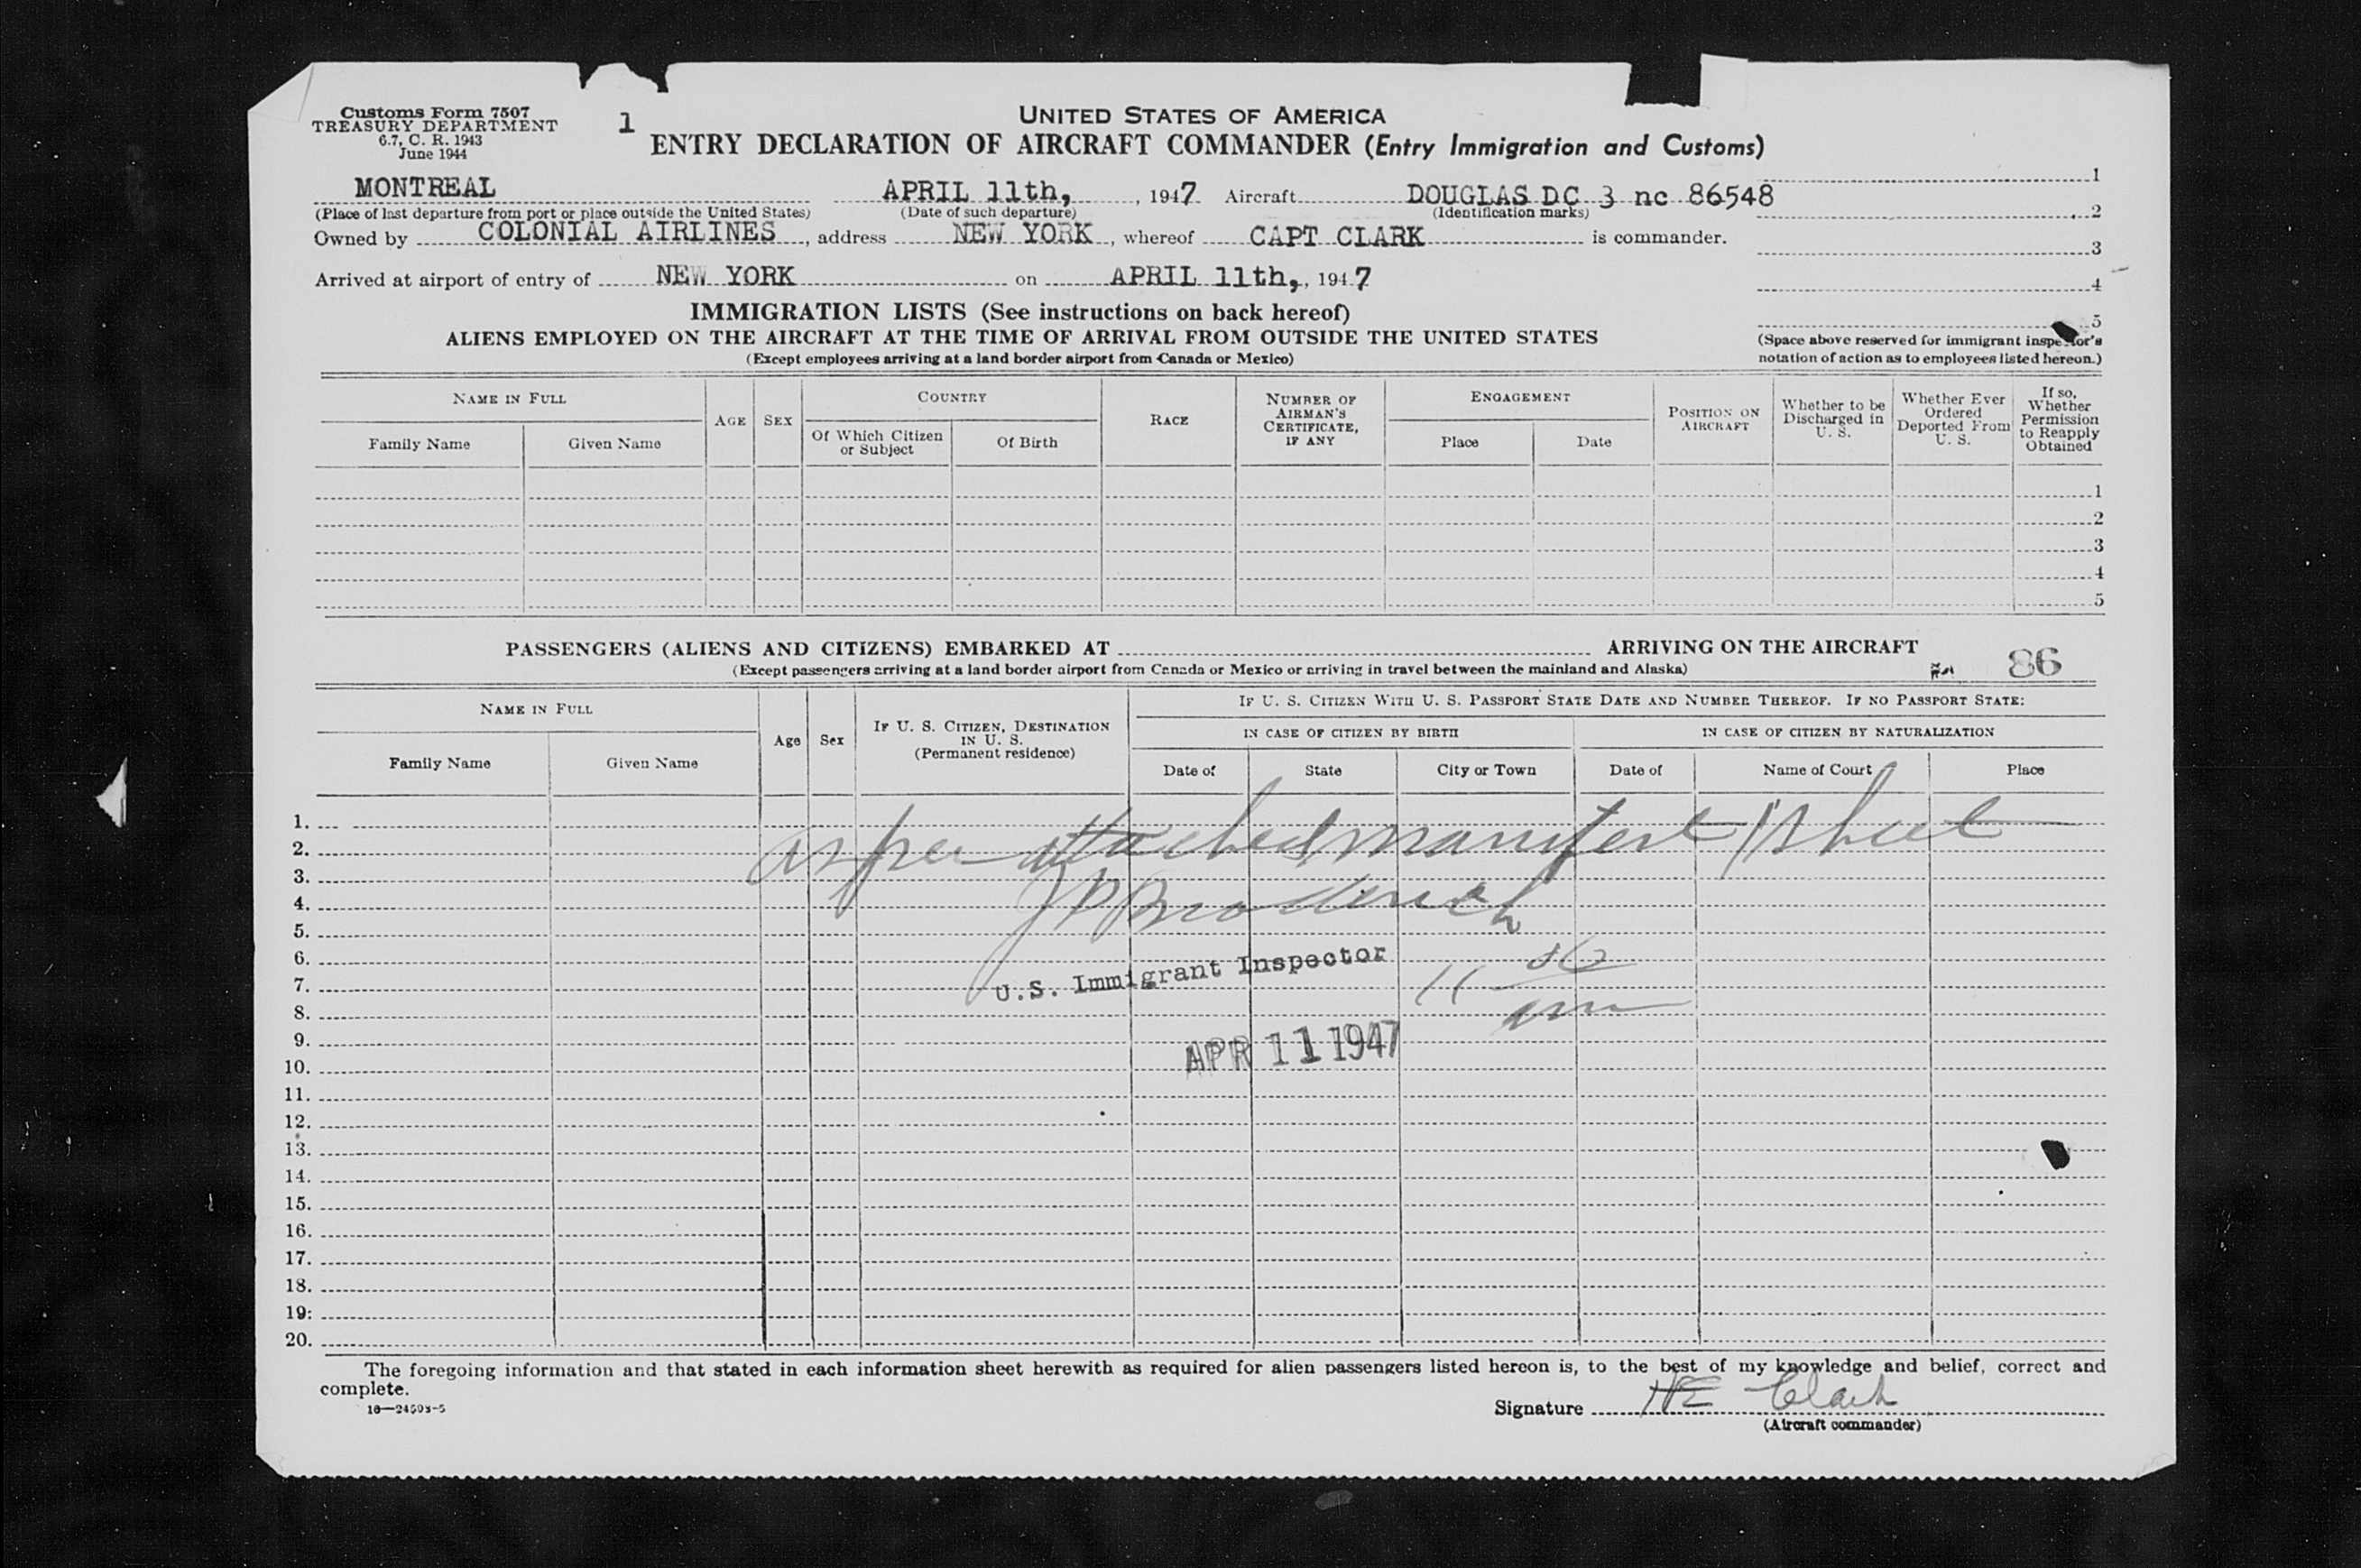 Customs Form 7507
TREASURY DEPARTMENT
6.7, C. R. 1943
June 1944
1
UNITED STATES OF AMERICA
ENTRY DECLARATION OF AIRCRAFT COMMANDER (Entry Immigration and Customs)
MONTREAL APRIL 11th, , 1947 Aircraft DOUGLAS DC 3 nc 86548
(Place of last departure from port or place outside the United States) (Date of such departure) (Identification marks)
Owned by COLONIAL AIRLINES , address NEW YORK , whereof CAPT CLARK is commander.
Arrived at airport of entry of NEW YORK on APRIL 11th, , 1947
1
2
3
4
5
(Space above reserved for immigrant inspector's
notation of action as to employees listed hereon.)
IMMIGRATION LISTS (See instructions on back hereof)
ALIENS EMPLOYED ON THE AIRCRAFT AT THE TIME OF ARRIVAL FROM OUTSIDE THE UNITED STATES
(Except employees arriving at a land border airport from Canada or Mexico)
NAME IN FULL
Family Name Given Name
AGE
SEX
COUNTRY
Of Which Citizen or Subject
Of Birth
RACE
NUMBER OF AIRMAN'S CERTIFICATE, IF ANY
ENGAGEMENT
Place Date
POSITION ON AIRCRAFT
Whether to be Discharged in U. S.
Whether Ever Ordered Deported From U. S.
If so, Whether Permission to Reapply Obtained
1
2
3
4
5
PASSENGERS (ALIENS AND CITIZENS) EMBARKED AT ARRIVING ON THE AIRCRAFT
(Except passengers arriving at a land border airport from Canada or Mexico or arriving in travel between the mainland and Alaska)
86
NAME IN FULL
Family Name Given Name
Age
Sex
IF U. S. CITIZEN, DESTINATION IN U. S. (Permanent residence)
IF U. S. CITIZEN WITH U. S. PASSPORT STATE DATE AND NUMBER THEREOF. IF NO PASSPORT STATE:
IN CASE OF CITIZEN BY BIRTH IN CASE OF CITIZEN BY NATURALIZATION
Date of State City or Town Date of Name of Court Place
1.
2. as per attached manifest 1 sheet
3.
4. J P Broderick
5.
6.
7. U.S. Immigrant Inspector 11
8.
9.
APR 11 1947
10.
11.
12.
13.
14.
15.
16.
17.
18.
19.
20.
The foregoing information and that stated in each information sheet herewith as required for alien passengers listed hereon is, to the best of my knowledge and belief, correct and
complete.
16—24593-5
Signature HE Clark
(Aircraft commander)